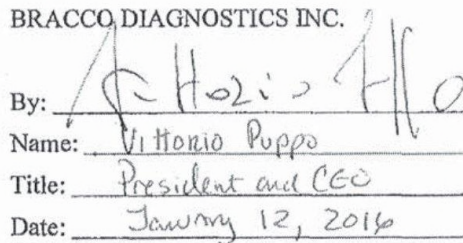 BRACCO DIAGNOSTICS INC.
By:
Name: Vittorio Puppo
Title: President and CEO
Date: January 12, 2016